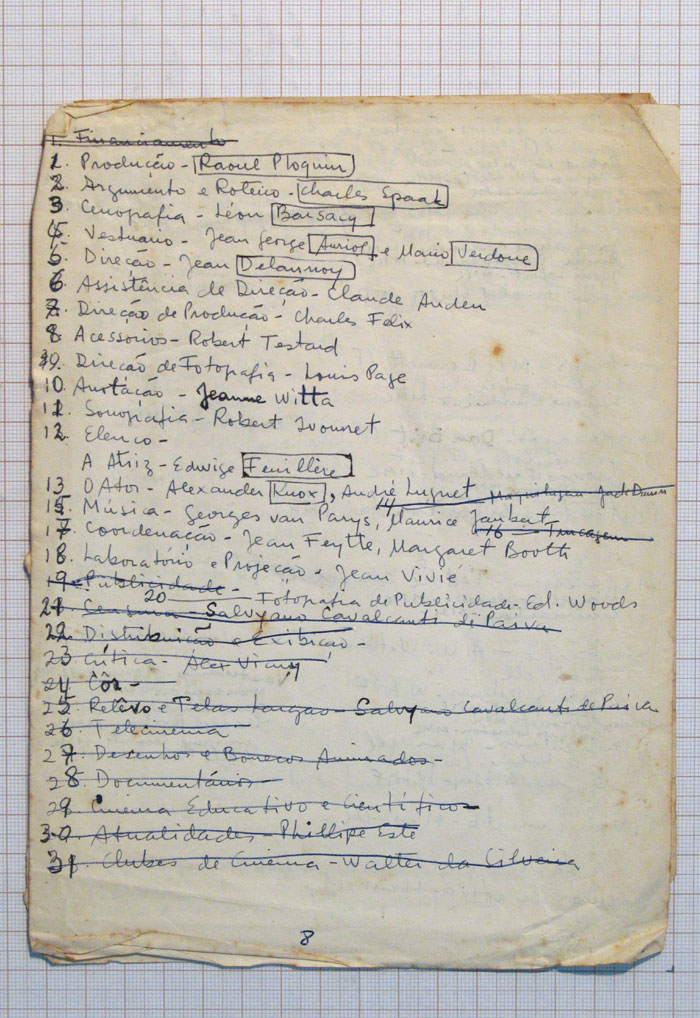 1. Financiamento
1. Produção - Raoul Ploquin
2. Argumento e Roteiro - Charles Spaak
3. Cenografia - Léon Barsacq
4. Vestuario - Jean George Auriol e Mario Verdone
5. Direção - Jean Delannoy
6 Assistência de Direção - Claude
7. Direção de Produção - Charles Felix
8. Acessorios - Robert Testard
9. Direcão de Fotografia - Louis Page
10 Anotação - Jeanne Witta
11. Sonografia - Robert Ivonnet
12. Elenco -
A Atriz - Edwige Feuillère
13 O Ator - Alexander Knox, André Luguet 14 Maquilagem Jack Dawn
15. Música - Georges van Parys, Maurice Jaubert
16 - Trucagem
17 Coordenação - Jean Feyte, Margaret Booth
18. Laboratório e Projeção - Jean Vivié
19 - Publicidade -
20 Fotografia de Publicidade - Ed. Woods
21 Censura - Salvyano Cavalcanti di Paiva
22. Distribuição e Exibição -
23 Crítica - Alex Viany
24 Côr -
25 Relêvo e Telas Largas - Salvyano Cavalcanti de Paiva
26 Telecinema
27. Desenhos e Bonecos Animados -
28. Documentários
29 Cinema Educativo e Científico
30. Atualidades - Phillipe Este
31. Clubes de Cinema - Walter da Silveira
8